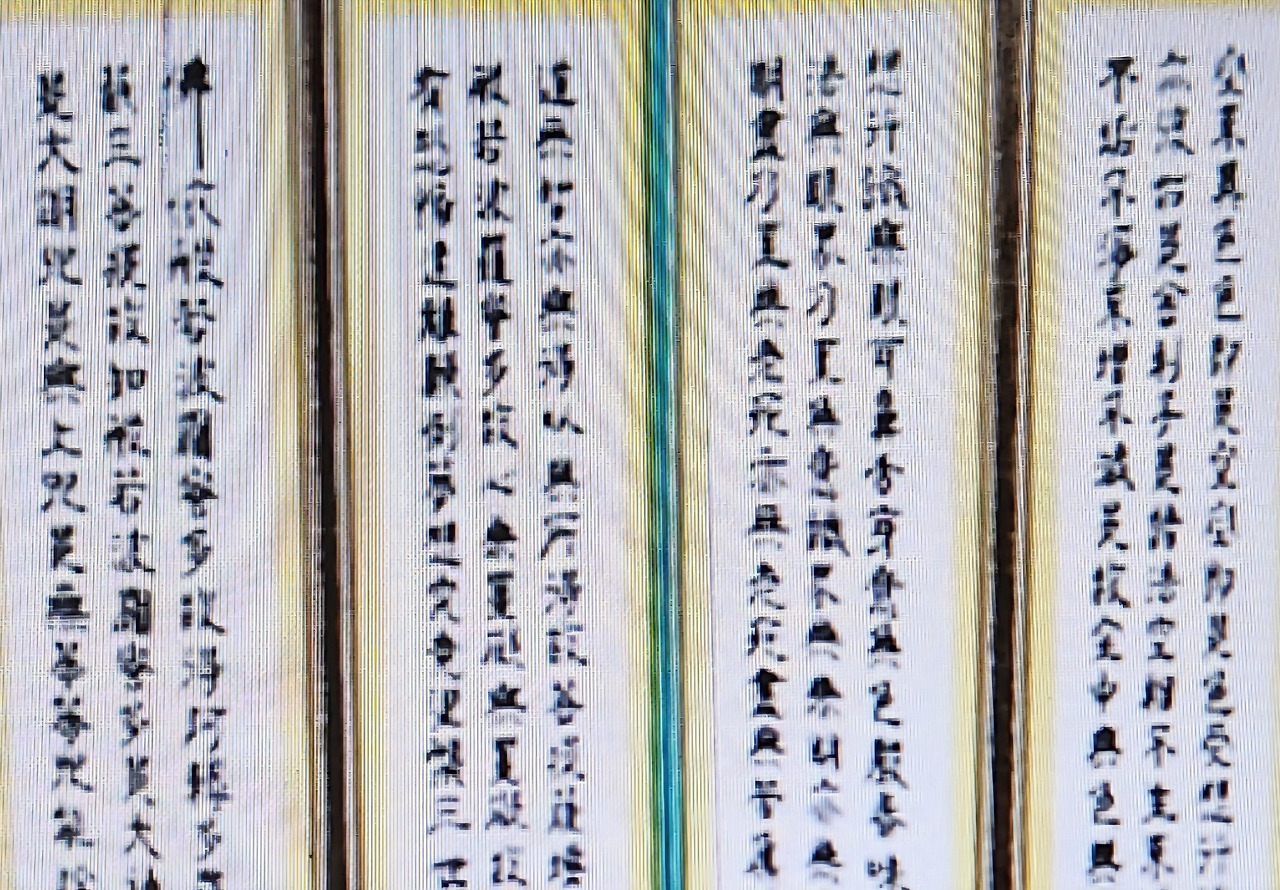 空不異色色即是空空即是色受想行
亦復如是舍利子是諸法空相不生不
不垢不淨不增不減是故空中無色無
想行識無眼耳鼻舌身意無色聲香味
法無眼界乃至無意識界無無明亦無
明盡乃至無老死亦無老死盡無苦集
道無智亦無得以無所得故菩提薩埵
般若波羅蜜多故心無罣礙無罣礙故
有恐怖遠離顛倒夢想究竟涅槃三世
佛依般若波羅蜜多故得阿耨多羅
藐三菩提故知般若波羅蜜多是大神
是大明咒是無上咒是無等等咒能除